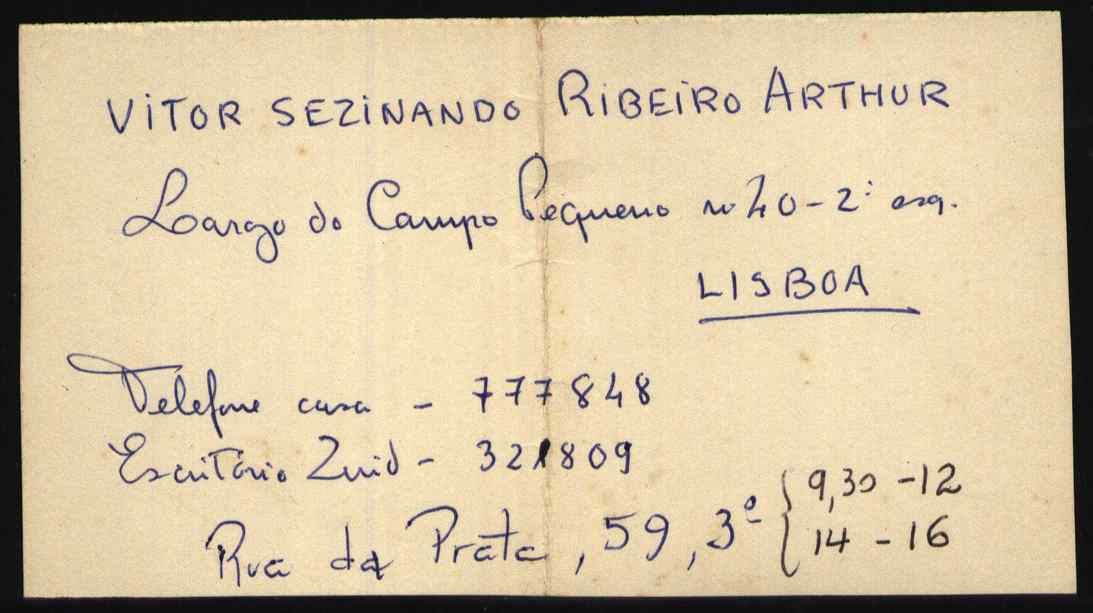 VITOR SEZINANDO RIBEIRO ARTHUR
Largo do Campo Pequeno nº 40-2º esq.
LISBOA
Telefone casa - 777848
Escritório Zuid - 321809
Rua da Prata, 59, 3º { 9,30 - 12
14 - 16